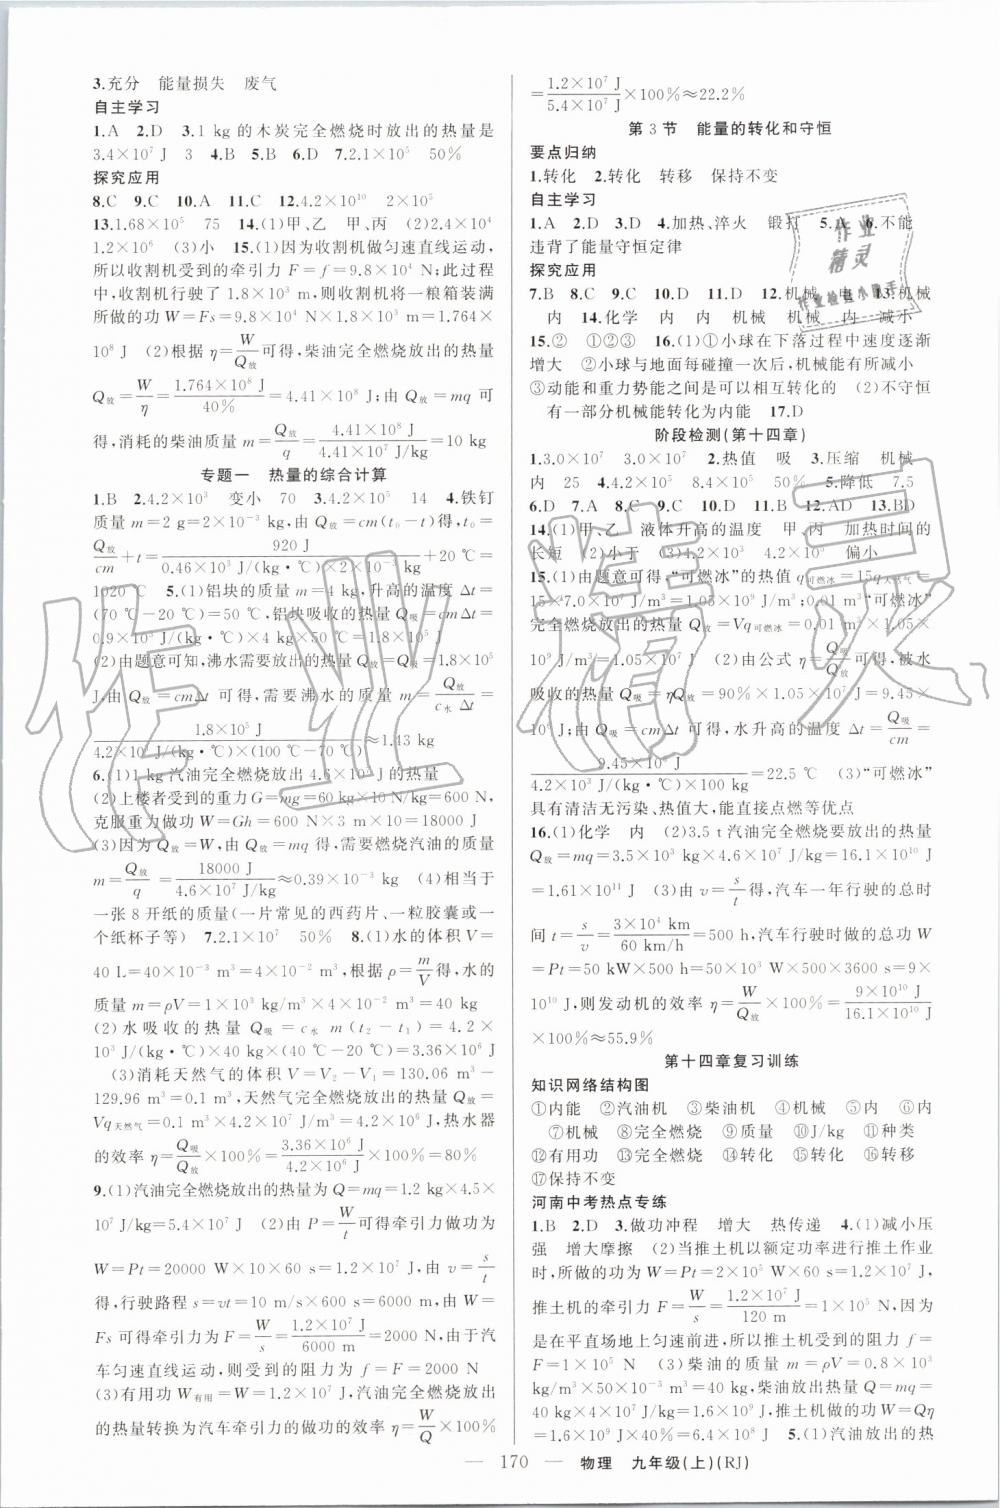 3.充分　能量损失　废气
自主学习
1.A　2.D　3.1 kg的木炭完全燃烧时放出的热量是
3.4×10⁷ J　3　4.B　5.B　6.D　7.2.1×10⁵　50%
探究应用
8.C　9.C　10.A　11.C　12.4.2×10¹⁰　2×10⁵
13.1.68×10⁵　75　14.(1)甲、乙　甲、丙　(2)2.4×10⁴
1.2×10⁶　(3)小　15.(1)因为收割机做匀速直线运动,
所以收割机受到的牵引力 F=f=9.8×10⁴ N;此过程
中,收割机行驶了 1.8×10³ m,则收割机将一粮箱装满
所做的功 W=Fs=9.8×10⁴ N×1.8×10³ m=1.764×
10⁸ J　(2)根据 η=W/Q放 可得,柴油完全燃烧放出的热量
Q放=W/η=1.764×10⁸ J/40%=4.41×10⁸ J;由 Q放=mq 可
得,消耗的柴油质量 m=Q放/q=4.41×10⁸ J/4.41×10⁷ J/kg=10 kg
专题一　热量的综合计算
1.B　2.4.2×10³　变小　70　3.4.2×10⁵　14　4.铁钉
质量 m=2 g=2×10⁻³ kg,由 Q放=cm(t₀-t)得,t₀=
Q放/cm+t=920 J/0.46×10³ J/(kg·℃)×2×10⁻³ kg+20 ℃=
1020 ℃　5.(1)铝块的质量 m=4 kg,升高的温度 Δt=
(70 ℃-20 ℃)=50 ℃,铝块吸收的热量 Q吸=cmΔt=
0.9×10³ J/(kg·℃)×4 kg×50 ℃=1.8×10⁵ J
(2)由题意可知,沸水需要放出的热量 Q放=Q吸=1.8×10⁵
J,由 Q放=cmΔt 可得,需要沸水的质量 m=Q放/c水Δt=
1.8×10⁵ J/4.2×10³ J/(kg·℃)×(100 ℃-70 ℃)≈1.43 kg
6.(1)1 kg汽油完全燃烧放出 4.6×10⁷ J的热量
(2)上楼者受到的重力G=mg=60 kg×10 N/kg=600 N,
克服重力做功 W=Gh=600 N×3 m×10=18000 J
(3)因为 Q放=W,由 Q放=mq 得,需要燃烧汽油的质量
m=Q放/q=18000 J/4.6×10⁷ J/kg≈0.39×10⁻³ kg　(4)相当于
一张 8 开纸的质量(一片常见的西药片、一粒胶囊或一
个纸杯子等)　7.2.1×10⁷　50%　8.(1)水的体积 V=
40 L=40×10⁻³ m³=4×10⁻² m³,根据 ρ=m/V 得,水的
质量 m=ρV=1×10³ kg/m³×4×10⁻² m³=40 kg
(2)水吸收的热量 Q吸=c水 m(t₂-t₁)=4.2×
10³ J/(kg·℃)×40 kg×20 ℃=3.36×10⁶ J
(3)消耗天然气的体积 V=V₂-V₁=130.06 m³-
129.96 m³=0.1 m³,天然气完全燃烧放出的热量 Q放=
Vq天然气=0.1 m³×4.2×10⁷ J/m³=4.2×10⁶ J,热水器
的效率 η=Q吸/Q放×100%=3.36×10⁶ J/4.2×10⁶ J×100%=80%
9.(1)汽油完全燃烧放出的热量为 Q=mq=1.2 kg×4.5×
10⁷ J/kg=5.4×10⁷ J　(2)由 P=W/t可得牵引力做功为
W=Pt=20000 W×10×60 s=1.2×10⁷ J,由 v=s/t
得,行驶路程 s=vt=10 m/s×600 s=6000 m,由 W=
Fs 可得牵引力为 F=W/s=1.2×10⁷ J/6000 m=2000 N,由于汽
车匀速直线运动,则受到的阻力为 f=F=2000 N
(3)有用功 W有用=W=1.2×10⁷ J,汽油完全燃烧放出
的热量转换为汽车牵引力的做功的效率 η=W/Q×100%
=1.2×10⁷ J/5.4×10⁷ J×100%≈22.2%
第 3 节　能量的转化和守恒
要点归纳
1.转化　2.转化　转移　保持不变
自主学习
1.A　2.D　3.D　4.加热、淬火　锻打　5.A　6.不能
违背了能量守恒定律
探究应用
7.B　8.C　9.C　10.D　11.D　12.机械　电　13.机械
内　14.化学　内　内　机械　机械　内　减小
15.②　②　③　16.(1)①小球在下落过程中速度逐渐
增大　②小球与地面每碰撞一次后,机械能有所减小
③动能和重力势能之间是可以相互转化的　(2)不守恒
有一部分机械能转化为内能　17.D
阶段检测(第十四章)
1.3.0×10⁷　3.0×10⁷　2.热值　吸　3.压缩　机械
内　25　4.4.2×10⁵　8.4×10⁵　50%　5.降低　7.5
6.D　7.A　8.C　9.C　10.D　11.B　12.AD　13.BD
14.(1)甲、乙　液体升高的温度　甲、丙　加热时间的
长短　(2)小于　(3)4.2×10³　4.2×10⁹　偏小
15.(1)由题意可得,“可燃冰”的热值 q可燃冰=15q天然气=
15×7.0×10⁷ J/m³=1.05×10⁹ J/m³;0.01 m³“可燃冰”
完全燃烧放出的热量 Q放=Vq可燃冰=0.01 m³×1.05×
10⁹ J/m³=1.05×10⁷ J　(2)由公式 η=Q吸/Q放可得,被水
吸收的热量 Q吸=ηQ放=90%×1.05×10⁷ J=9.45×
10⁶ J;由 Q吸=cmΔt 可得,水升高的温度 Δt=Q吸/cm=
9.45×10⁶ J/4.2×10³ J/(kg·℃)×100 kg=22.5 ℃　(3)“可燃冰”
具有清洁无污染、热值大,能直接点燃等优点
16.(1)化学　内　(2)3.5 t汽油完全燃烧要放出的热量
Q放=mq=3.5×10³ kg×4.6×10⁷ J/kg=16.1×10¹⁰ J
=1.61×10¹¹ J　(3)由 v=s/t得,汽车一年行驶的总时
间 t=s/v=3×10⁴ km/60 km/h=500 h,汽车行驶时做的总功 W
=Pt=50 kW×500 h=50×10³ W×500×3600 s=9×
10¹⁰ J,则发动机的效率 η=W/Q放×100%=9×10¹⁰ J/16.1×10¹⁰ J
×100%≈55.9%
第十四章复习训练
知识网络结构图
①内能　②汽油机　③柴油机　④机械　⑤内　⑥内
⑦机械　⑧完全燃烧　⑨质量　⑩J/kg　⑪种类
⑫有用功　⑬完全燃烧　⑭转化　⑮转化　⑯转移
⑰保持不变
河南中考热点专练
1.B　2.D　3.做功冲程　增大　热传递　4.(1)减小压
强　增大摩擦　(2)当推土机以额定功率进行推土作业
时,所做的功为 W=Pt=2×10⁵ W×60 s=1.2×10⁷ J,
推土机的牵引力 F=W/s=1.2×10⁷ J/120 m=1×10⁵ N,因为
是在平直场地上匀速前进,所以推土机受到的阻力 f=
F=1×10⁵ N　(3)柴油的质量 m=ρV=0.8×10³
kg/m³×50×10⁻³ m³=40 kg,柴油放出热量 Q=mq=
40 kg×4×10⁷ J/kg=1.6×10⁹ J,所做的功 W=Qη
=1.6×10⁹ J×40%=6.4×10⁸ J　5.(1)汽油的热量 Q放
— 170 —　物理　九年级(上)(RJ)
作业
精灵
作业检查小助手
作业精灵